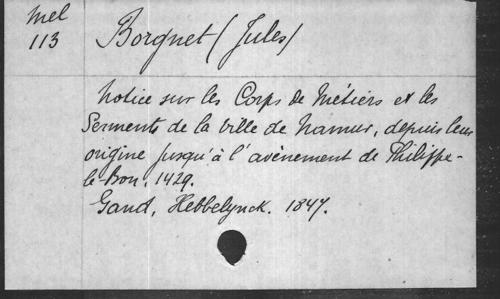 Mel
113
Borgnet (Jules)
Notice sur les Corps de Métiers et les
Serments de la ville de Namur, depuis leur
origine jusqu'à l'avènement de Philippe-
le-Bon, 1429.
Gand, Hebbelynck. 1847.